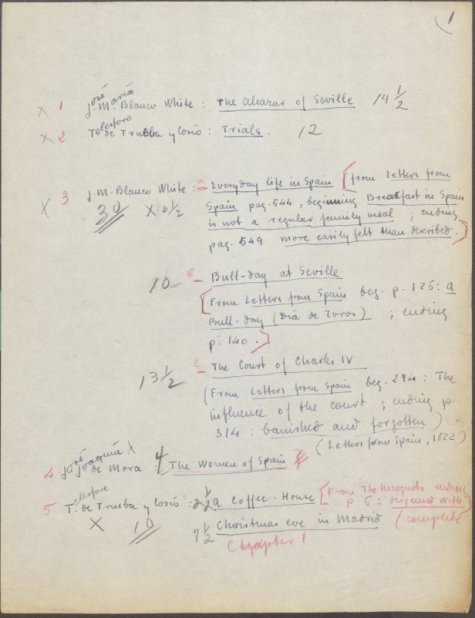 1
José María
X 1 J. M. Blanco White : The Alcazar of Seville 14 1/2
Telesforo
X 2 T. de Trueba y Cosío : Trials. 12
X 3 J. M. Blanco White : Everyday life in Spain [from Letters from
30 X 6 1/2 Spain pag. 544, beginning Breakfast in Spain
is not a regular family meal ; ending
pag. 549 more easily felt than described.]
10 Bull-day at Seville
[From Letters from Spain beg. p. 126: a
Bull-day (Día de Toros) ; ending
p. 140.]
13 1/2 The Court of Charles IV
(From Letters from Spain beg. 294 : The
influence of the court ; ending p.
314 : banished and forgotten)
(Letters from Spain, 1822)
José Joaquín X
4 J. J. de Mora 4 The Women of Spain
Telesforo
5 T. de Trueba y Cosío : 2 1/2 A Coffee-House [From The
p. 6 : with]
X 10 7 1/2 Christmas eve in Madrid (complete
Chapter 1